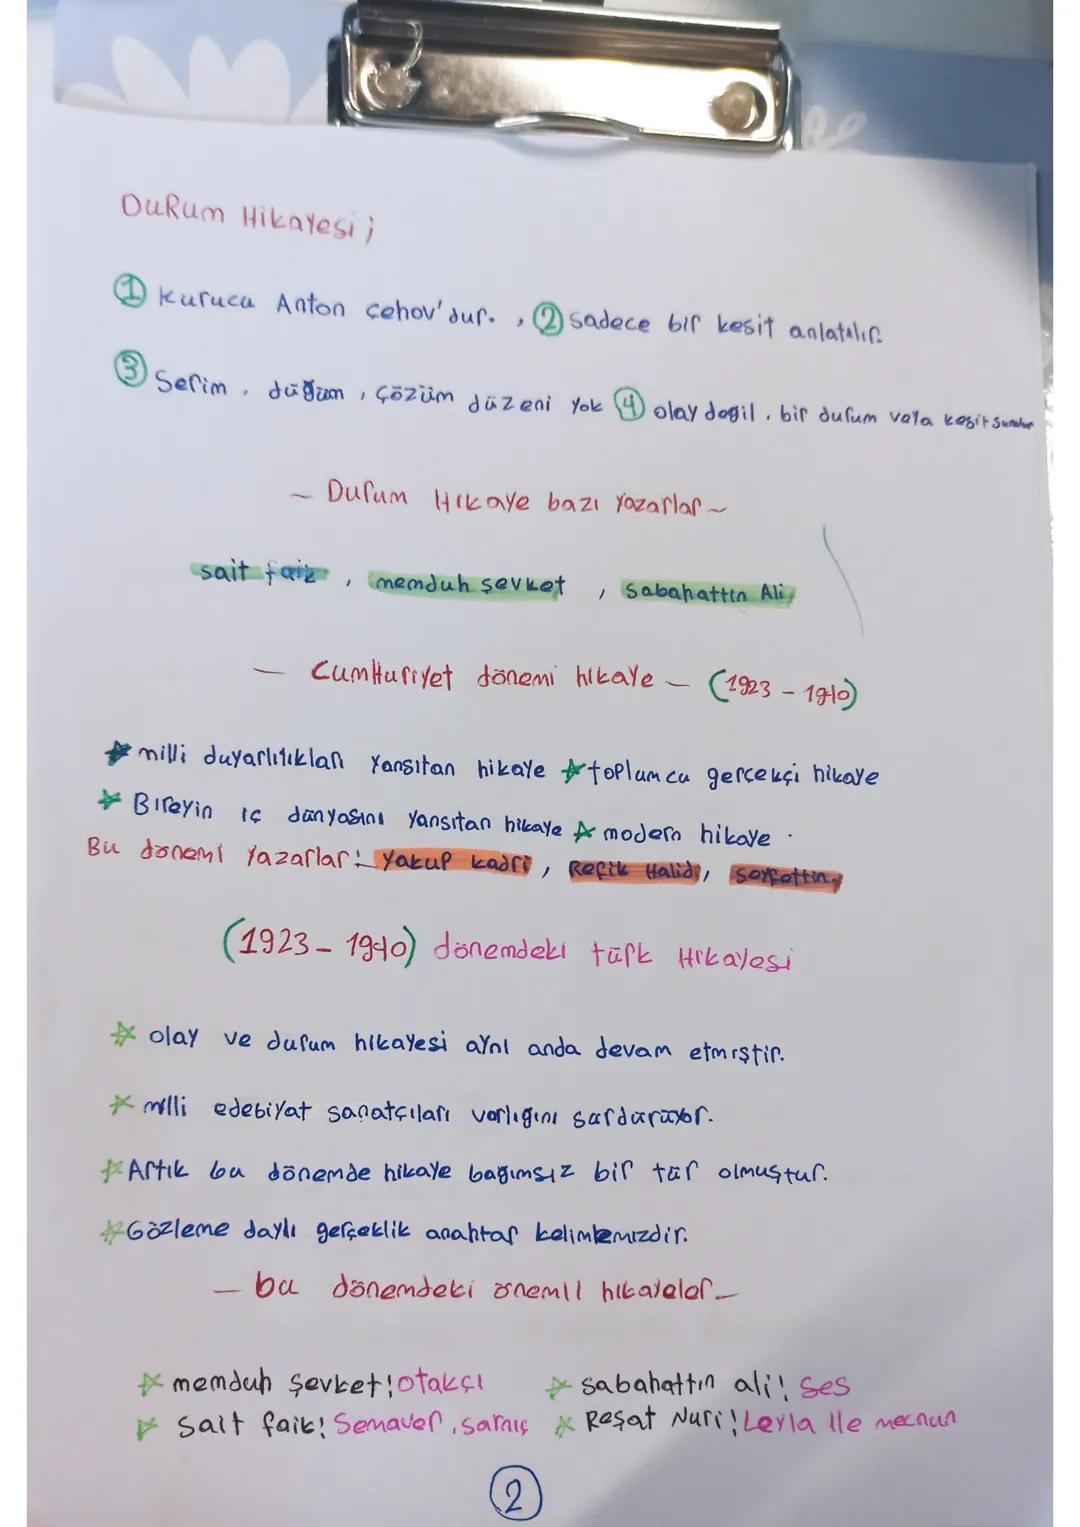 Durum Hikayesi ;
① kurucu Anton Çehov'dur. , ② sadece bir kesit anlatılır.
③ Serim , düğüm , çözüm düzeni yok ④ olay değil , bir durum veya kesit sunulur
~ Durum Hikaye bazı yazarlar ~
sait faik , memduh şevket , Sabahattin Ali,
— Cumhuriyet dönemi hikaye — (1923 - 1940)
☆ milli duyarlılıkları yansıtan hikaye ☆ toplumcu gerçekçi hikaye
☆ Bireyin iç dünyasını yansıtan hikaye ☆ modern hikaye .
Bu dönemi yazarlar: Yakup kadri , Refik Halid , Seyfettin,
(1923 - 1940) dönemdeki türk Hikayesi
☆ olay ve durum hikayesi aynı anda devam etmiştir.
☆ milli edebiyat sanatçıları varlığını sürdürüyor.
☆ Artık bu dönemde hikaye bağımsız bir tür olmuştur.
☆ Gözleme daylı gerçeklik anahtar kelimemizdir.
— bu dönemdeki önemli hikayeler —
☆ memduh şevket: otakçı ☆ sabahattin ali: Ses
☆ sait faik: Semaver , sarnıç ☆ Reşat Nuri: Leyla ile mecnun
2